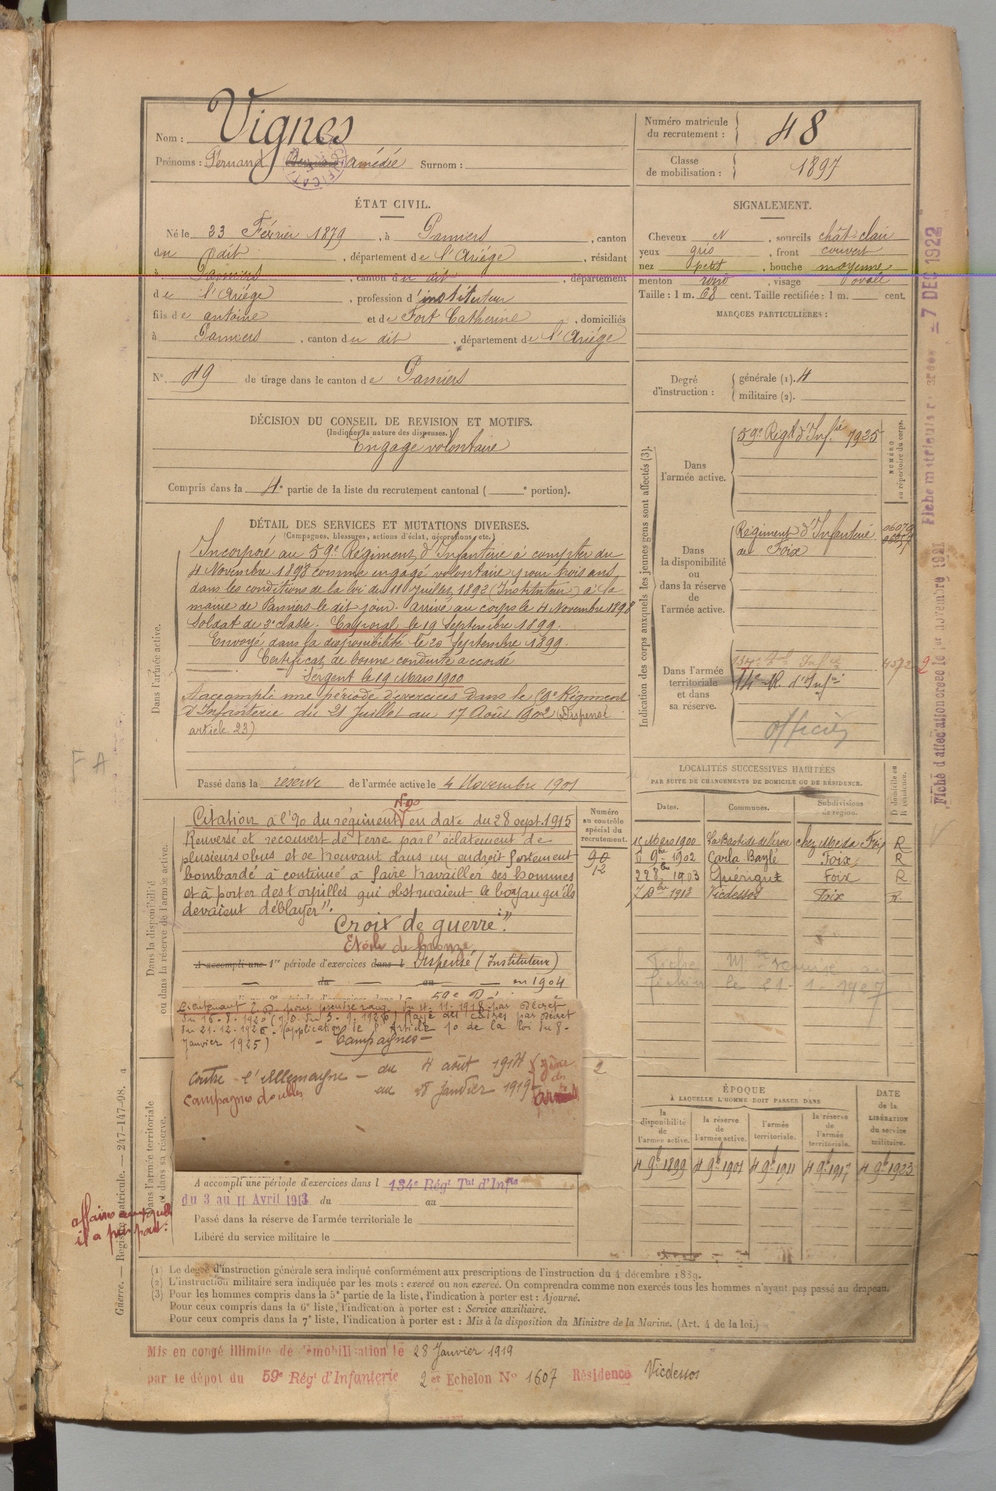 Nom : Vignes
Prénoms : Fernand Amédée Surnom :
Numéro matricule du recrutement : 48
Classe de mobilisation : 1897
ÉTAT CIVIL.
Né le 23 Février 1879, à Pamiers, canton
du dit, département de l'Ariège, résidant
à Pamiers, canton du dit, département
de l'Ariège, profession d'instituteur
fils de antoine et de Fort Catherine, domiciliés
à Pamiers, canton du dit, département de l'Ariège
N° 19 de tirage dans le canton de Pamiers
SIGNALEMENT.
Cheveux N, sourcils chât-clair
yeux gris, front couvert
nez petit, bouche moyenne
menton rond, visage ovale
Taille : 1 m. 68 cent. Taille rectifiée : 1 m. cent.
MARQUES PARTICULIÈRES :
Degré d'instruction : générale (1). 4
militaire (2).
DÉCISION DU CONSEIL DE REVISION ET MOTIFS.
(Indiquer la nature des dispenses.)
Engagé volontaire
Compris dans la 4e partie de la liste du recrutement cantonal ( e portion).
DÉTAIL DES SERVICES ET MUTATIONS DIVERSES.
(Campagnes, blessures, actions d'éclat, décorations, etc.)
Dans l'armée active.
Incorporé au 59e Régiment d'Infanterie à compter du
4 Novembre 1898 comme engagé volontaire pour trois ans
dans les conditions de la loi du 11 Juillet 1892 (Instituteur) à la
mairie de Pamiers le dit jour. Arrivé au corps le 4 Novembre 1898
Soldat de 2e classe. Caporal le 19 Septembre 1899.
Envoyé dans la disponibilité le 20 Septembre 1899.
Certificat de bonne conduite accordé
Sergent le 19 Mars 1900
A accompli une période d'exercices dans le 59e Régiment
d'Infanterie du 21 Juillet au 17 Août 1902 (Dispensé
article 23)
Passé dans la réserve de l'armée active le 4 Novembre 1901
Indication des corps auxquels les jeunes gens sont affectés (3).
NUMÉRO au répertoire du corps.
Dans l'armée active.
59e Régt d'Infie 1925
Dans la disponibilité ou dans la réserve de l'armée active.
Régiment d'Infanterie
de Foix
Dans l'armée territoriale et dans sa réserve.
officier
LOCALITÉS SUCCESSIVES HABITÉES
PAR SUITE DE CHANGEMENTS DE DOMICILE OU DE RÉSIDENCE.
Dates. Communes. Subdivisions de région. D domicile ou R résidence.
15 Mars 1900 La Bastide de Sérou Foix R
9bre 1902 Carla Bayle Foix R
22 1903 Quérigut Foix R
1913 Vicdessos Foix
Dans la disponibilité ou dans la réserve de l'armée active.
Numéro au contrôle spécial du recrutement.
Citation à l'o. du régiment No en date du 28 sept. 1915
Renversé et recouvert de terre par l'éclatement de
plusieurs obus et se trouvant dans un endroit fortement
bombardé à continué à faire travailler ses hommes
et à porter des torpilles qui obstruaient le boyau qu'ils
devaient déblayer".
Croix de guerre."
Etoile de bronze
A accompli une 1re période d'exercices dans l Dispensé (Instituteur)
du au en 1904
Lieutenant à T.D. pour prendre rang du 4.11.1918 par Décret
Janvier 1925)
- Campagnes -
contre - l'Allemagne - du 4 août 1914
au 28 Janvier 1919
campagne double
2
ÉPOQUE
À LAQUELLE L'HOMME DOIT PASSER DANS
DATE de la LIBÉRATION du service militaire.
la disponibilité de l'armée active. la réserve de l'armée active. l'armée territoriale. la réserve de l'armée territoriale.
4 9bre 1899 4 9bre 1901 4 9bre 1911 4 9bre 1917 4 9bre 1923
Dans l'armée territoriale et dans sa réserve.
A accompli une période d'exercices dans l 134e Régt Tal d'Infie
du 3 au 11 Avril 1913 du au
Passé dans la réserve de l'armée territoriale le
Libéré du service militaire le
(1) Le degré d'instruction générale sera indiqué conformément aux prescriptions de l'instruction du 4 décembre 1889.
(2) L'instruction militaire sera indiquée par les mots : exercé ou non exercé. On comprendra comme non exercés tous les hommes n'ayant pas passé au drapeau.
(3) Pour les hommes compris dans la 5e partie de la liste, l'indication à porter est : Ajourné.
Pour ceux compris dans la 6e liste, l'indication à porter est : Service auxiliaire.
Pour ceux compris dans la 7e liste, l'indication à porter est : Mis à la disposition du Ministre de la Marine. (Art. 4 de la loi.)
Mis en congé illimité de démobilisation le 28 Janvier 1919
par le dépôt du 59e Régt d'Infanterie 2e Echelon N° 1607 Résidence Vicdessos
Guerre. — Registre matricule. — 247-147-98.
FA
7 DEC 1922